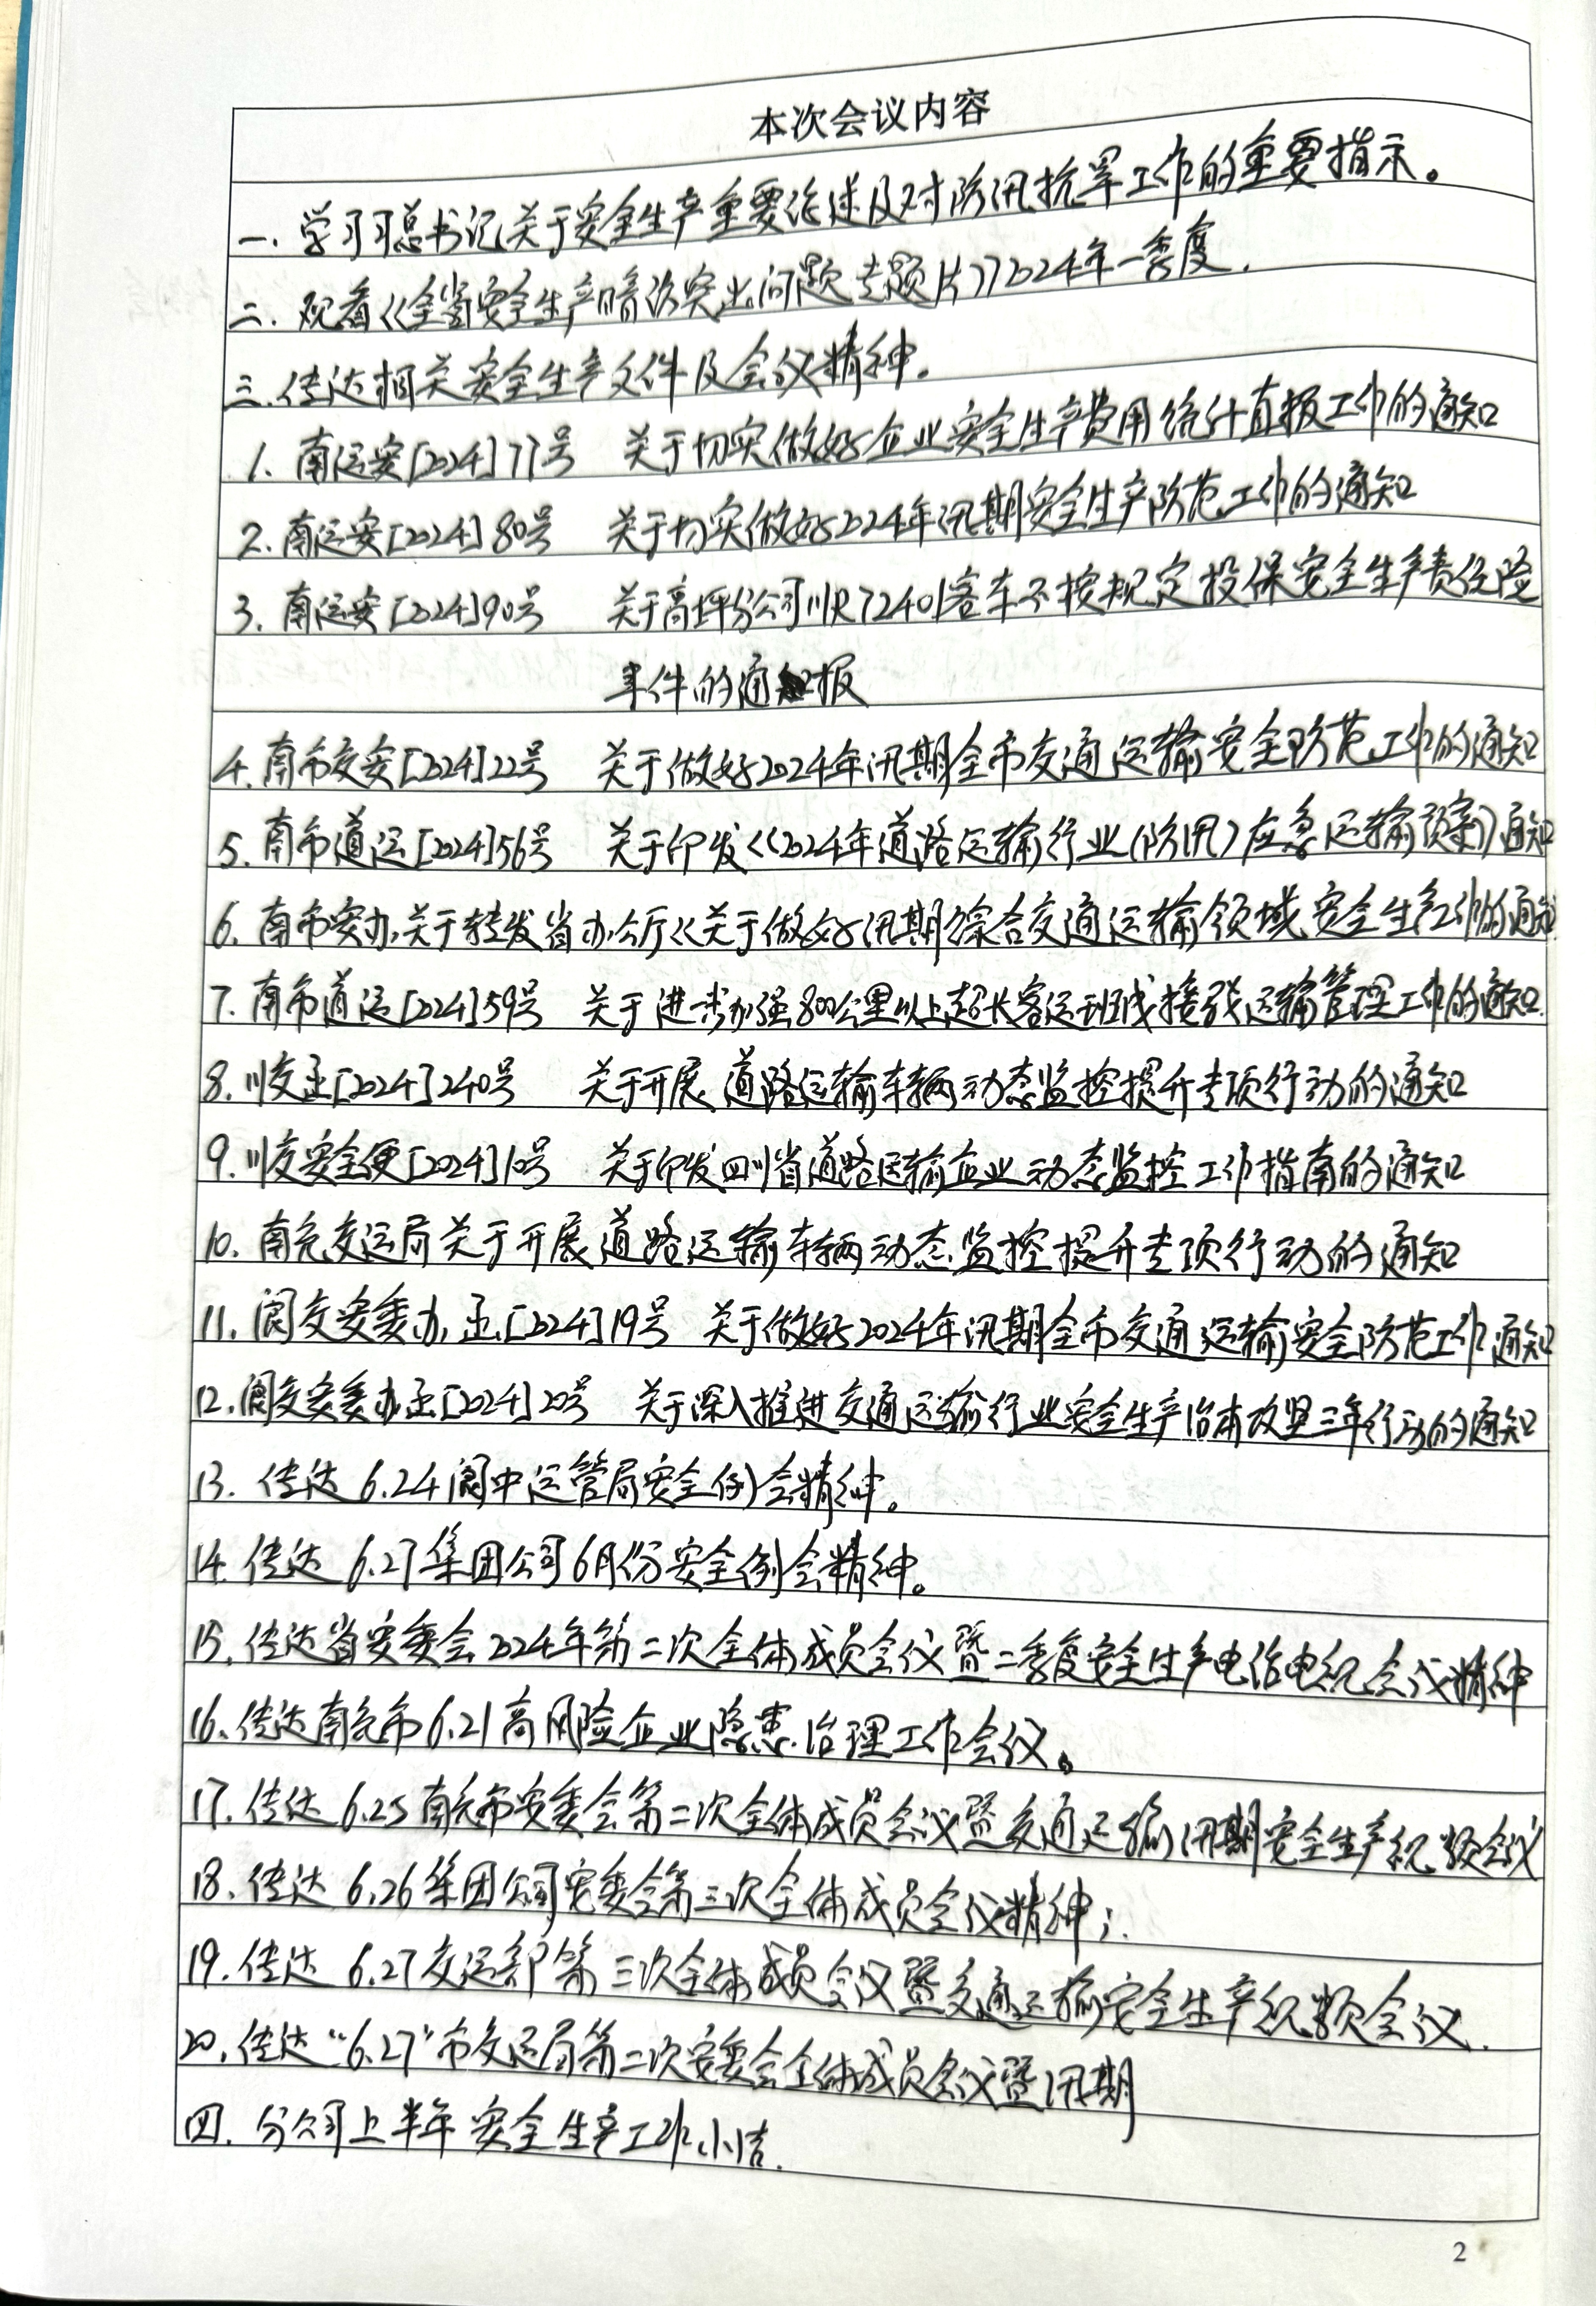 本次会议内容
一. 学习习总书记关于安全生产重要论述及对防汛抗旱工作的重要指示。
二. 观看《全省安全生产暗访突出问题专题片》2024年一季度.
三.传达相关安全生产文件及会议精神。
1. 南运安[2024]77号 关于切实做好企业安全生产费用统计直报工作的通知
2. 南运安[2024]80号 关于切实做好2024年汛期安全生产防范工作的通知
3. 南运安[2024]90号 关于高坪分公司川R72401客车不按规定投保安全生产责任险
事件的通报
4.南市交安[2024]22号 关于做好2024年汛期全市交通运输安全防范工作的通知
5.南市道运[2024]56号 关于印发《2024年道路运输行业(防汛)应急运输预案》通知
6.南市安办,关于转发省办公厅《关于做好汛期综合交通运输领域安全生产工作的通知
7.南市道运[2024]59号 关于进一步加强800公里以上超长客运班线接驳运输管理工作的通知.
8.川交函[2024]240号 关于开展道路运输车辆动态监控提升专项行动的通知
9.川交安全便[2024]10号 关于印发四川省道路运输企业动态监控工作指南的通知
10. 南充交运局关于开展道路运输车辆动态监控提升专项行动的通知
11.阆交安委办函[2024]19号 关于做好2024年汛期全市交通运输安全防范工作通知
12.阆交安委办函[2024]20号 关于深入推进交通运输行业安全生产治本攻坚三年行动的通知
13. 传达6.24阆中运管局安全例会精神。
14.传达6.27集团公司6月份安全例会精神。
15.传达省安委会2024年第二次全体成员会议暨二季度安全生产电话电视会议精神
16.传达南充市6.21高风险企业隐患治理工作会议。
17.传达6.25南充市安委会第二次全体成员会议暨交通运输汛期安全生产视频会议
18.传达6.26集团公司安委会第三次全体成员会议精神;.
19.传达6.27交运部第三次全体成员会议暨交通运输安全生产视频会议.
20.传达“6.27”市交运局第二次安委会全体成员会议暨汛期
四. 分公司上半年安全生产工作小结.
2